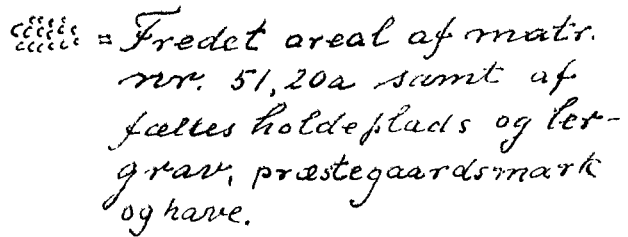 = Fredet areal af matr.
nr. 51, 20a samt af
fælles holdeplads og ler-
grav, præstegaardsmark
og have.